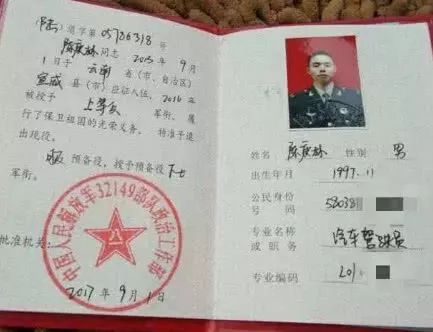 (陆) 退字第 05726318 号
陈庚林 同志 2015 年 9 月
1 日于 云南 省(市、自治区)
宣威 县(市)应征入伍, 2016 年
被授予 上等兵 军衔, 履
行了保卫祖国的光荣义务, 特准予退
出现役。
服 预备役, 授予预备役 下士
军衔。
批准机关:
中国人民解放军32149部队政治工作部
2017 年 9 月 1 日
姓名 陈庚林 性别 男
出生年月 1997.11
公民身份
号码 58038
专业名称
或职务 汽车驾驶员
专业编码 201